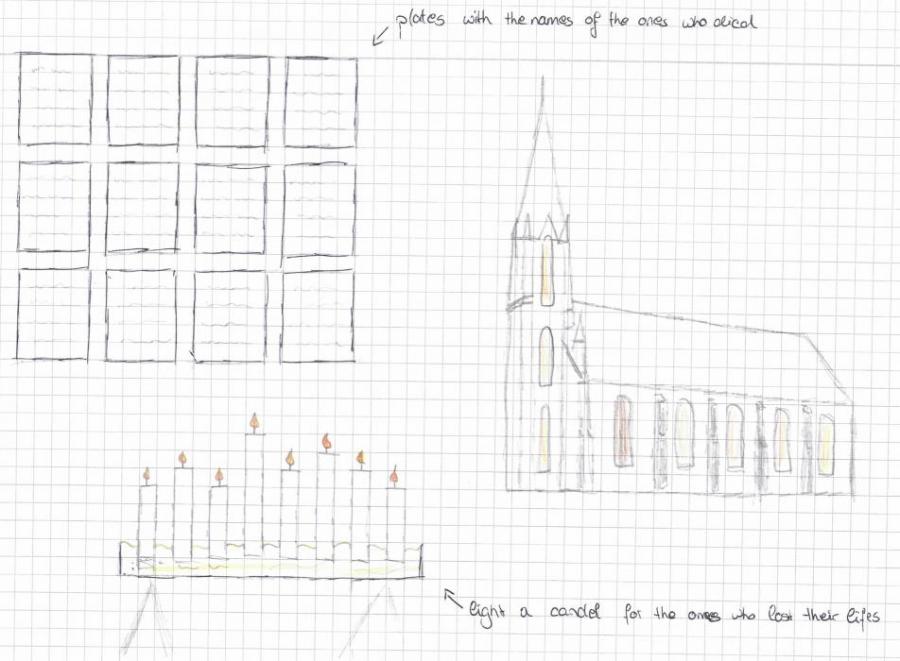 plates with the names of the ones who dicd
light a candel for the ones who lost their lifes